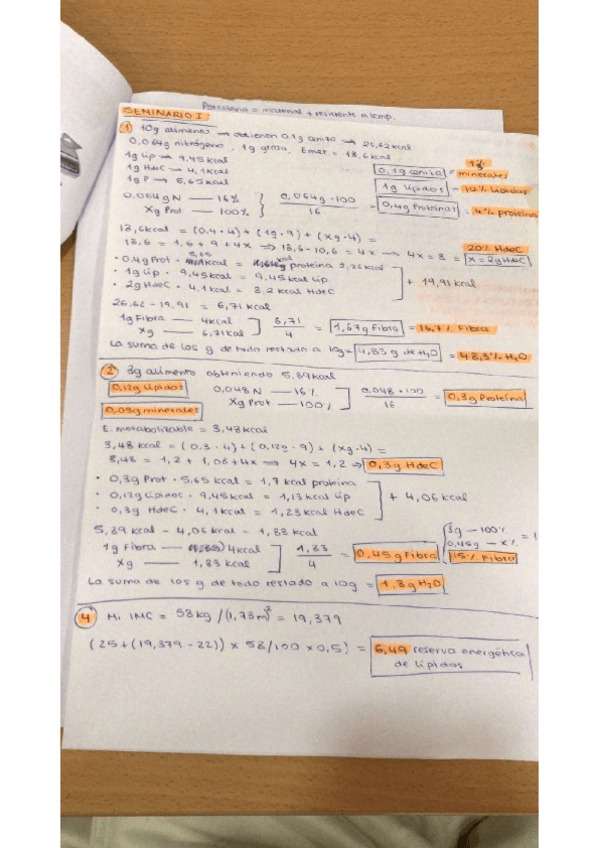 Porcelana = material + resistente a temp.
SEMINARIO I
1 10g alimento → obtienen 0,1g ceniza → 26,62 kcal
0,064g nitrógeno, 1g grasa, Emet = 13,6 kcal
1g Lip → 9,45 kcal
1g HdeC → 4,1 kcal
1g P → 5,65 kcal
0,1g ceniza = 1% minerales
1g Lípidos = 10% Lípidos
0,064g N — 16%
Xg Prot — 100%
0,064g · 100 / 16 = 0,4g Proteínas = 4% proteína
13,6 kcal = (0,4 · 4) + (1g · 9) + (Xg · 4) =
13,6 = 1,6 + 9 + 4x ⇒ 13,6 - 10,6 = 4x → 4x = 3 = x = 2g HdeC
20% HdeC
· 0,4g Prot · 5,65 kcal = proteína 2,26 kcal
· 1g Lip · 9,45 kcal = 9,45 kcal Lip
· 2g HdeC · 4,1 kcal = 8,2 kcal HdeC
+ 19,91 kcal
26,62 - 19,91 = 6,71 kcal
1g Fibra — 4 kcal
Xg — 6,71 kcal
6,71 / 4 = 1,67g Fibra = 16,7% Fibra
La suma de los g de todo restado a 10g = 4,83 g de H₂O = 48,3% H₂O
2 3g alimento obteniendo 5,89 kcal
0,12g Lípidos
0,048 N — 16%
Xg Prot — 100%
0,048 · 100 / 16 = 0,3g Proteína
0,03g minerales
E. metabolizable = 3,48 kcal
3,48 kcal = (0,3 · 4) + (0,12g · 9) + (Xg · 4) =
3,48 = 1,2 + 1,08 + 4x ⇒ 4x = 1,2 → 0,3g HdeC
· 0,3g Prot · 5,65 kcal = 1,7 kcal proteína
· 0,12g Lípidos · 9,45 kcal = 1,13 kcal Lip
· 0,3g HdeC · 4,1 kcal = 1,23 kcal HdeC
+ 4,06 kcal
5,89 kcal - 4,06 kcal = 1,83 kcal
1g Fibra — 4 kcal
Xg — 1,83 kcal
1,83 / 4 = 0,45g Fibra
3g — 100%
0,45g — x%
15% Fibra
La suma de los g de todo restado a 10g = 1,8g H₂O
4 Mi IMC = 58 kg / (1,73m)² = 19,379
(25 + (19,379 - 22)) × 58/100 × 0,5) = 6,49 reserva energética
de Lípidos